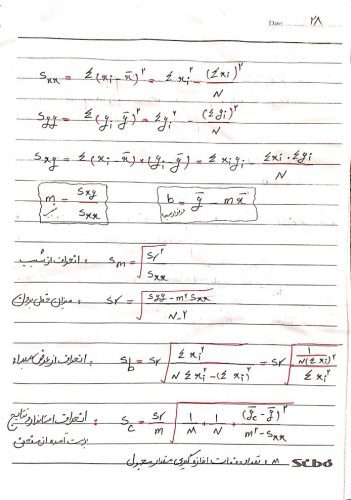 Date: ۲۸
Sxx = Σ(xi - x̄)² = Σxi² - (Σxi)²/N
Syy = Σ(yi - ȳ)² = Σyi² - (Σyi)²/N
Sxy = Σ(xi - x̄) × (yi - ȳ) = Σxiyi - Σxi·Σyi/N
m = Sxy/Sxx    b = ȳ - mx̄
شیب    عرض از مبدا
انحراف از شیب : Sm = √(Sr²/Sxx)
میزان خطی بودن Sr = √((Syy - m²Sxx)/(N-2))
انحراف از عرض از مبداء : Sb = Sr √(Σxi²/(NΣxi² - (Σxi)²)) = Sr √(1/(N(Σxi)²/Σxi²))
انحراف استاندارد نتایج : Sc = Sr/m √(1/M + 1/N + (ȳc - ȳ)²/(m² - Sxx))
بدست آمده از منحنی
M : تعداد دفعات اندازه گیری مقدار مجهول